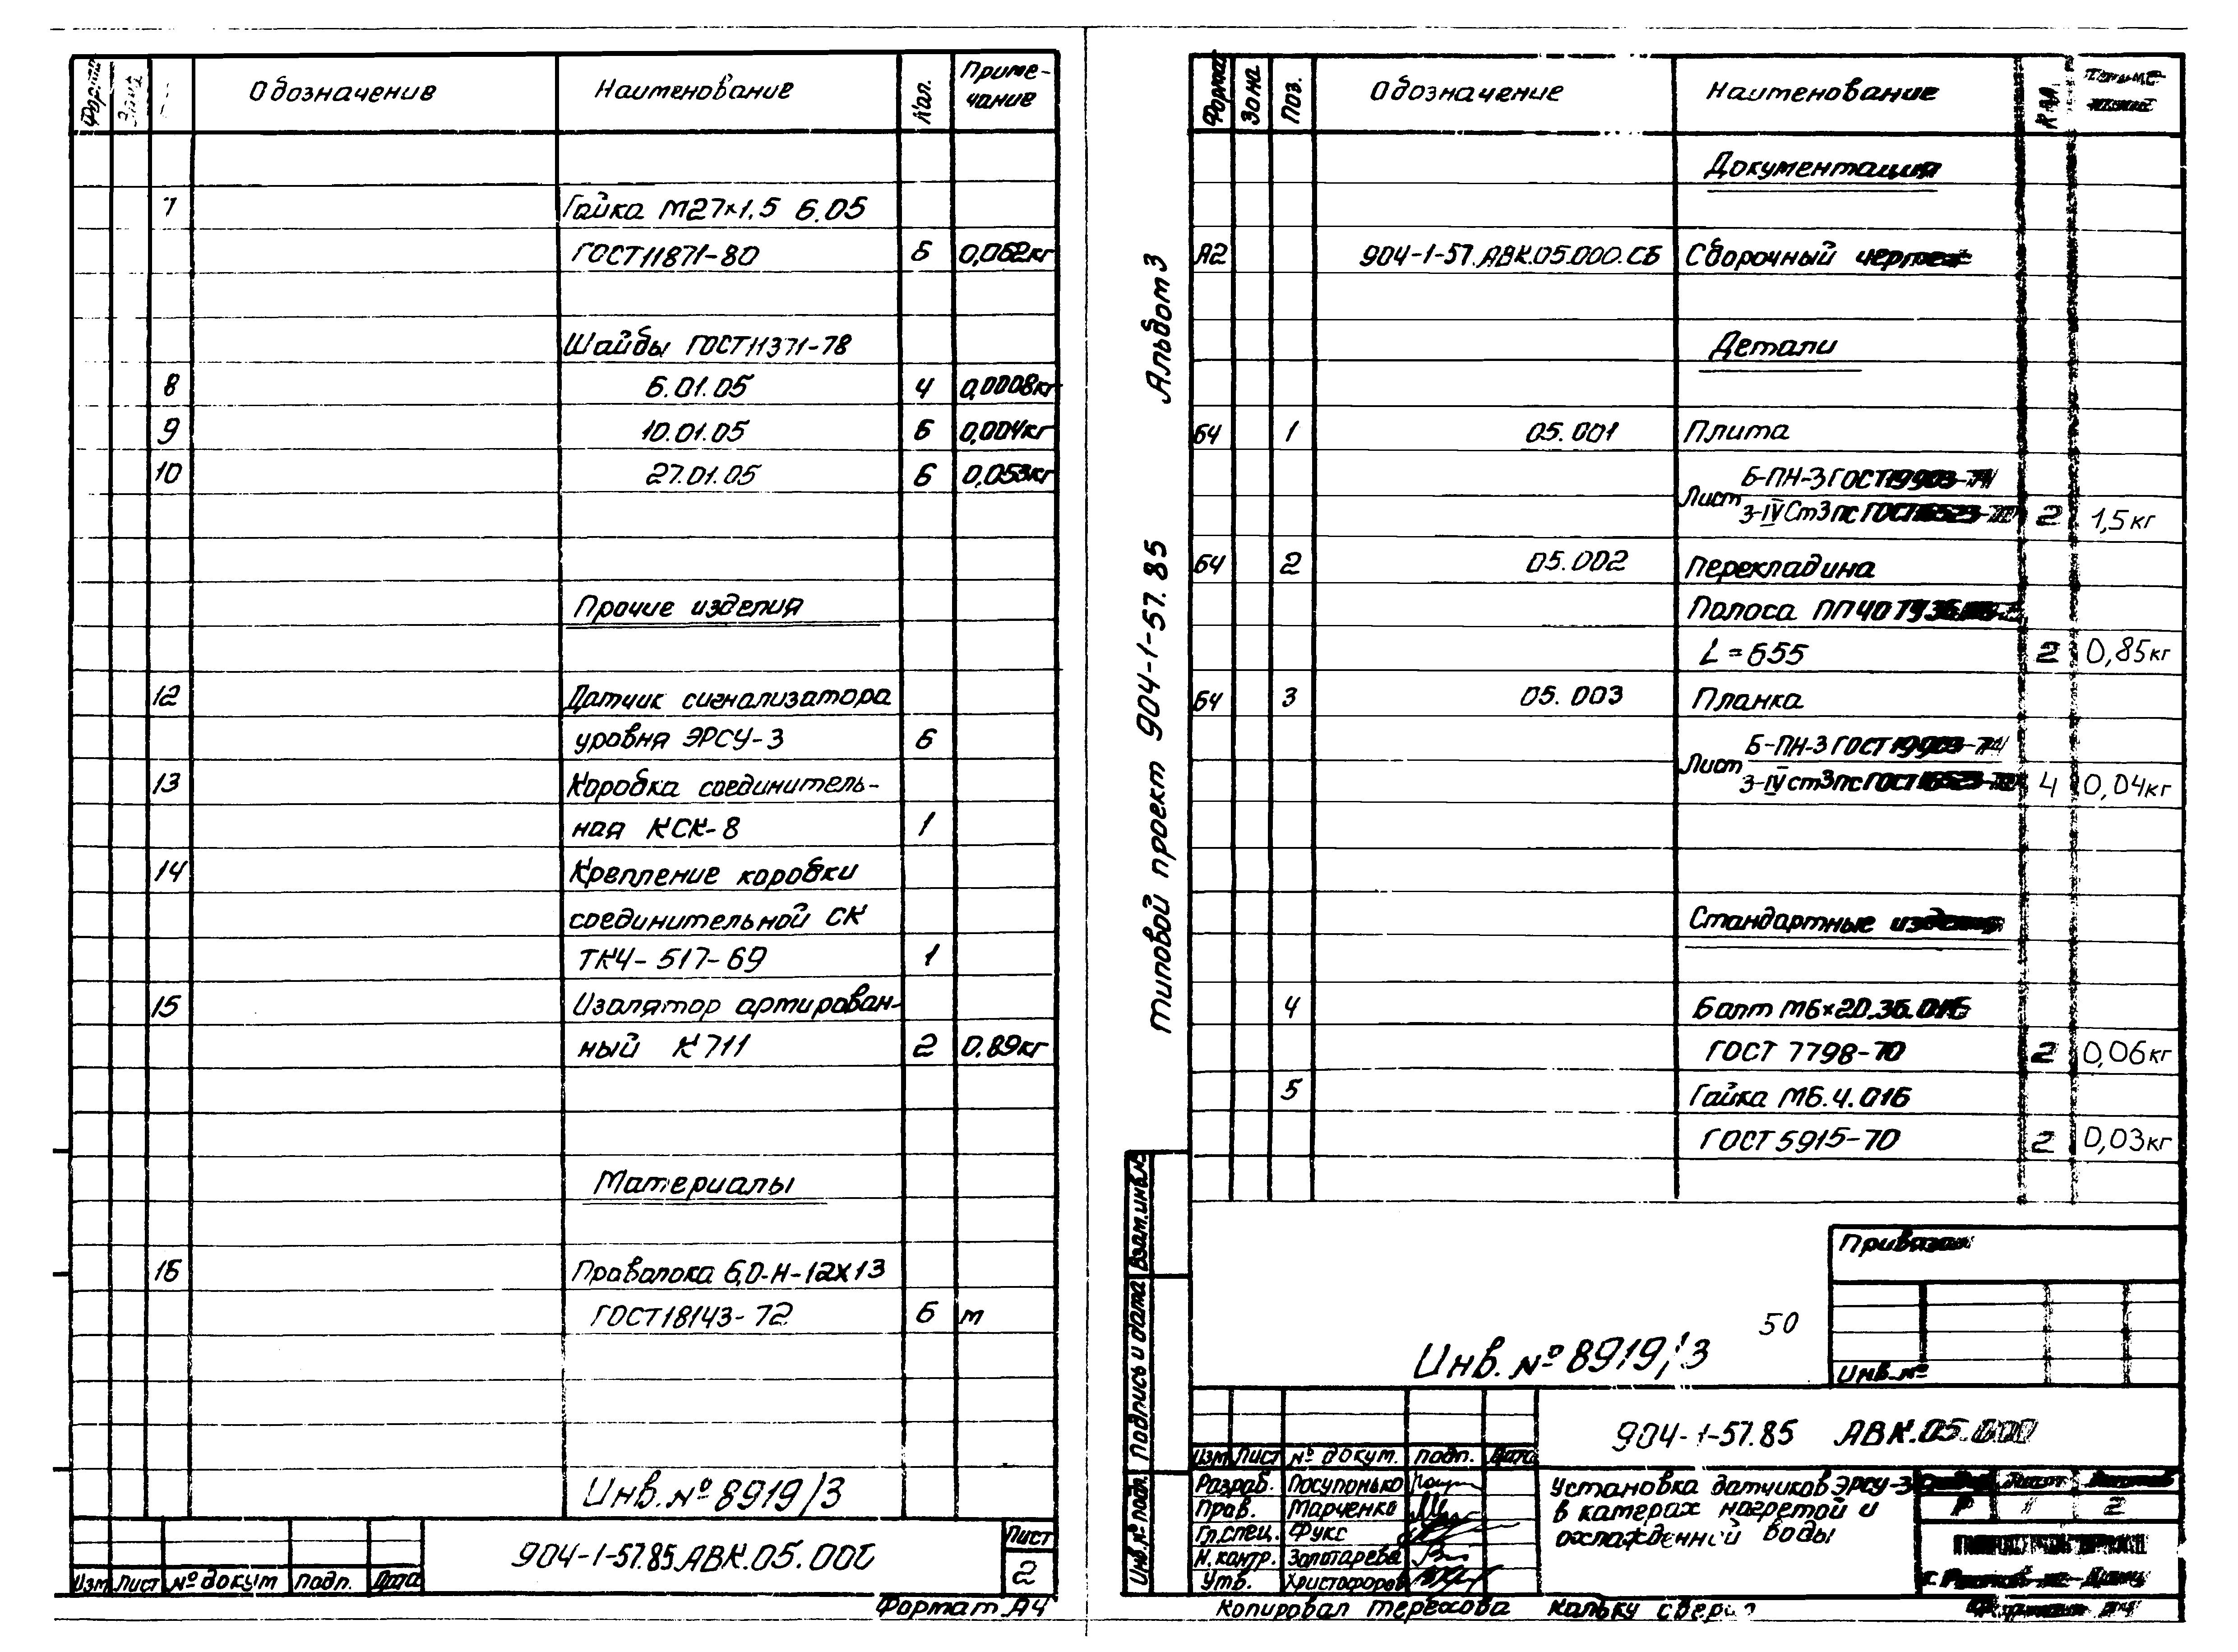 Формат Зона Обозначение Наименование Кол. Приме-
чание
7 Гайка М27×1,5 6.05
ГОСТ11871-80 6 0,062кг
Шайбы ГОСТ11371-78
8 6.01.05 4 0,0008кг
9 10.01.05 6 0,004кг
10 27.01.05 6 0,053кг
Прочие изделия
12 Датчик сигнализатора
уровня ЭРСУ-3 6
13 Коробка соединитель-
ная КСК-8 1
14 Крепление коробки
соединительной СК
ТКЧ-517-69 1
15 Изолятор артирован-
ный К711 2 0.89кг
Материалы
16 Проволока 6,0-Н-12Х13
ГОСТ18143-72 6 м
Инв. № 8919/3
904-1-57.85.АВК.05.000
Лист
2
Изм Лист № докум подп. Дата
Формат А4
Альбом 3
Типовой проект 904-1-57.85
Формат Зона Поз. Обозначение Наименование Кол.
Документация
А2 904-1-57.АВК.05.000.СБ Сборочный чертеж
Детали
БЧ 1 05.001 Плита
Б-ПН-3 ГОСТ19903-74
Лист
3-IV Ст3пс ГОСТ16523-70 2 1,5кг
БЧ 2 05.002 Перекладина
Полоса ПП40
L=655 2 0,85кг
БЧ 3 05.003 Планка
Б-ПН-3 ГОСТ19903-74
Лист
3-IV ст3пс ГОСТ16523-70 4 0,04кг
Стандартные изделия
4 Болт М6×20.36.016
ГОСТ 7798-70 2 0,06кг
5 Гайка М6.4.016
ГОСТ 5915-70 2 0,03кг
Взам.инв.№
Подпись и дата
Инв.№подл.
Привязан
Инв. №
50
Инв. № 8919/3
904-1-57.85 АВК.05.000
Изм Лист № докум. подп. Дата
Разраб. Посупонько
Пров. Марченко
Гл.спец. Фукс
Н.контр. Золотарева
Утв. Христофоров
Установка датчиков ЭРСУ-3
в камерах нагретой и
охлажденной воды
Лист
Р 1 2
Копировал Терехова кальку сверил